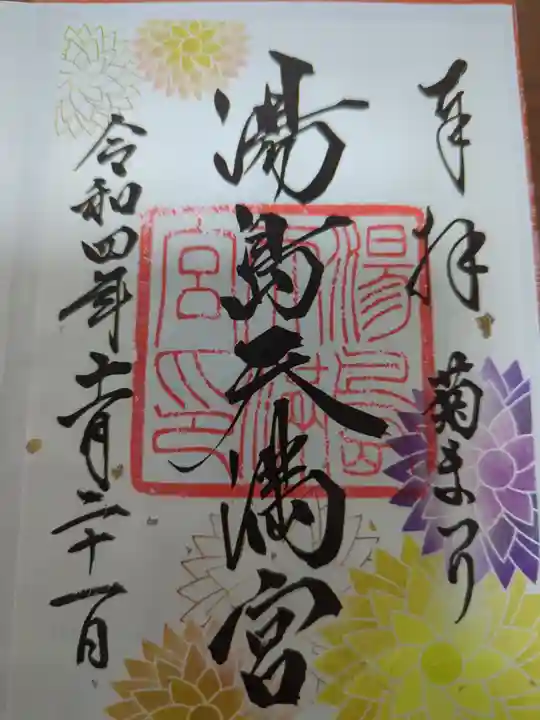 奉拝 菊まつり
湯島天満宮
湯島天満宮印
令和四年十一月二十一日